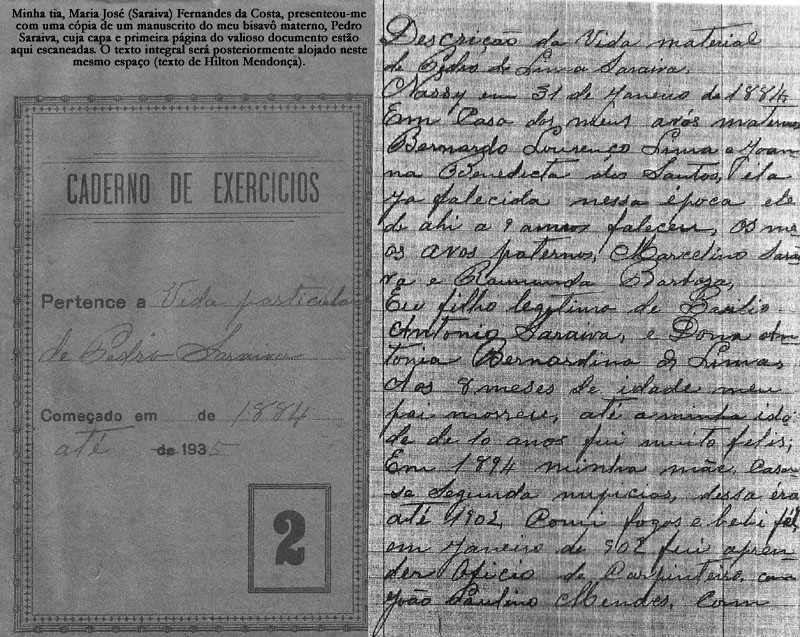 Minha tia, Maria José (Saraiva) Fernandes da Costa, presenteou-me
com uma cópia de um manuscrito do meu bisavô materno, Pedro
Saraiva, cuja capa e primeira página do valioso documento estão
aqui escaneadas. O texto integral será posteriormente alojado neste
mesmo espaço (texto de Hilton Mendonçà).
CADERNO DE EXERCICIOS
Pertence a Vida particular
de Pedro Saraiva
Começado em de 1884
até de 1935
2
Descrição da Vida material
de Pedro de Lima Saraiva.
Nassy em 31 de Janeiro de 1884
Em Casa dos meus avós maternos
Bernardo Lourenço Lima e Joan
na Benedicta dos Santos, ela
ja falecida nessa época ele
de ahi a 9 annos faleceu, os me
os avos paternos, Marcelino Sarai
va e Raimunda Barboza,
Eu filho legitimo de Basilio
Antonio Saraiva, e Dona An
tonia Bernardina de Limas
Aos 8 meses de idade meu
pai morreu, até a minha ida
de de 10 anos fui muito feliz;
Em 1894 minha mãe, Casou
se Segunda nupicias, dessa éra
até 1902, Comi fogos e bebi fél,
em Janeiro de 902 fui apren
der Oficio de Carpinteiro com
João Paulino Mendes, Com